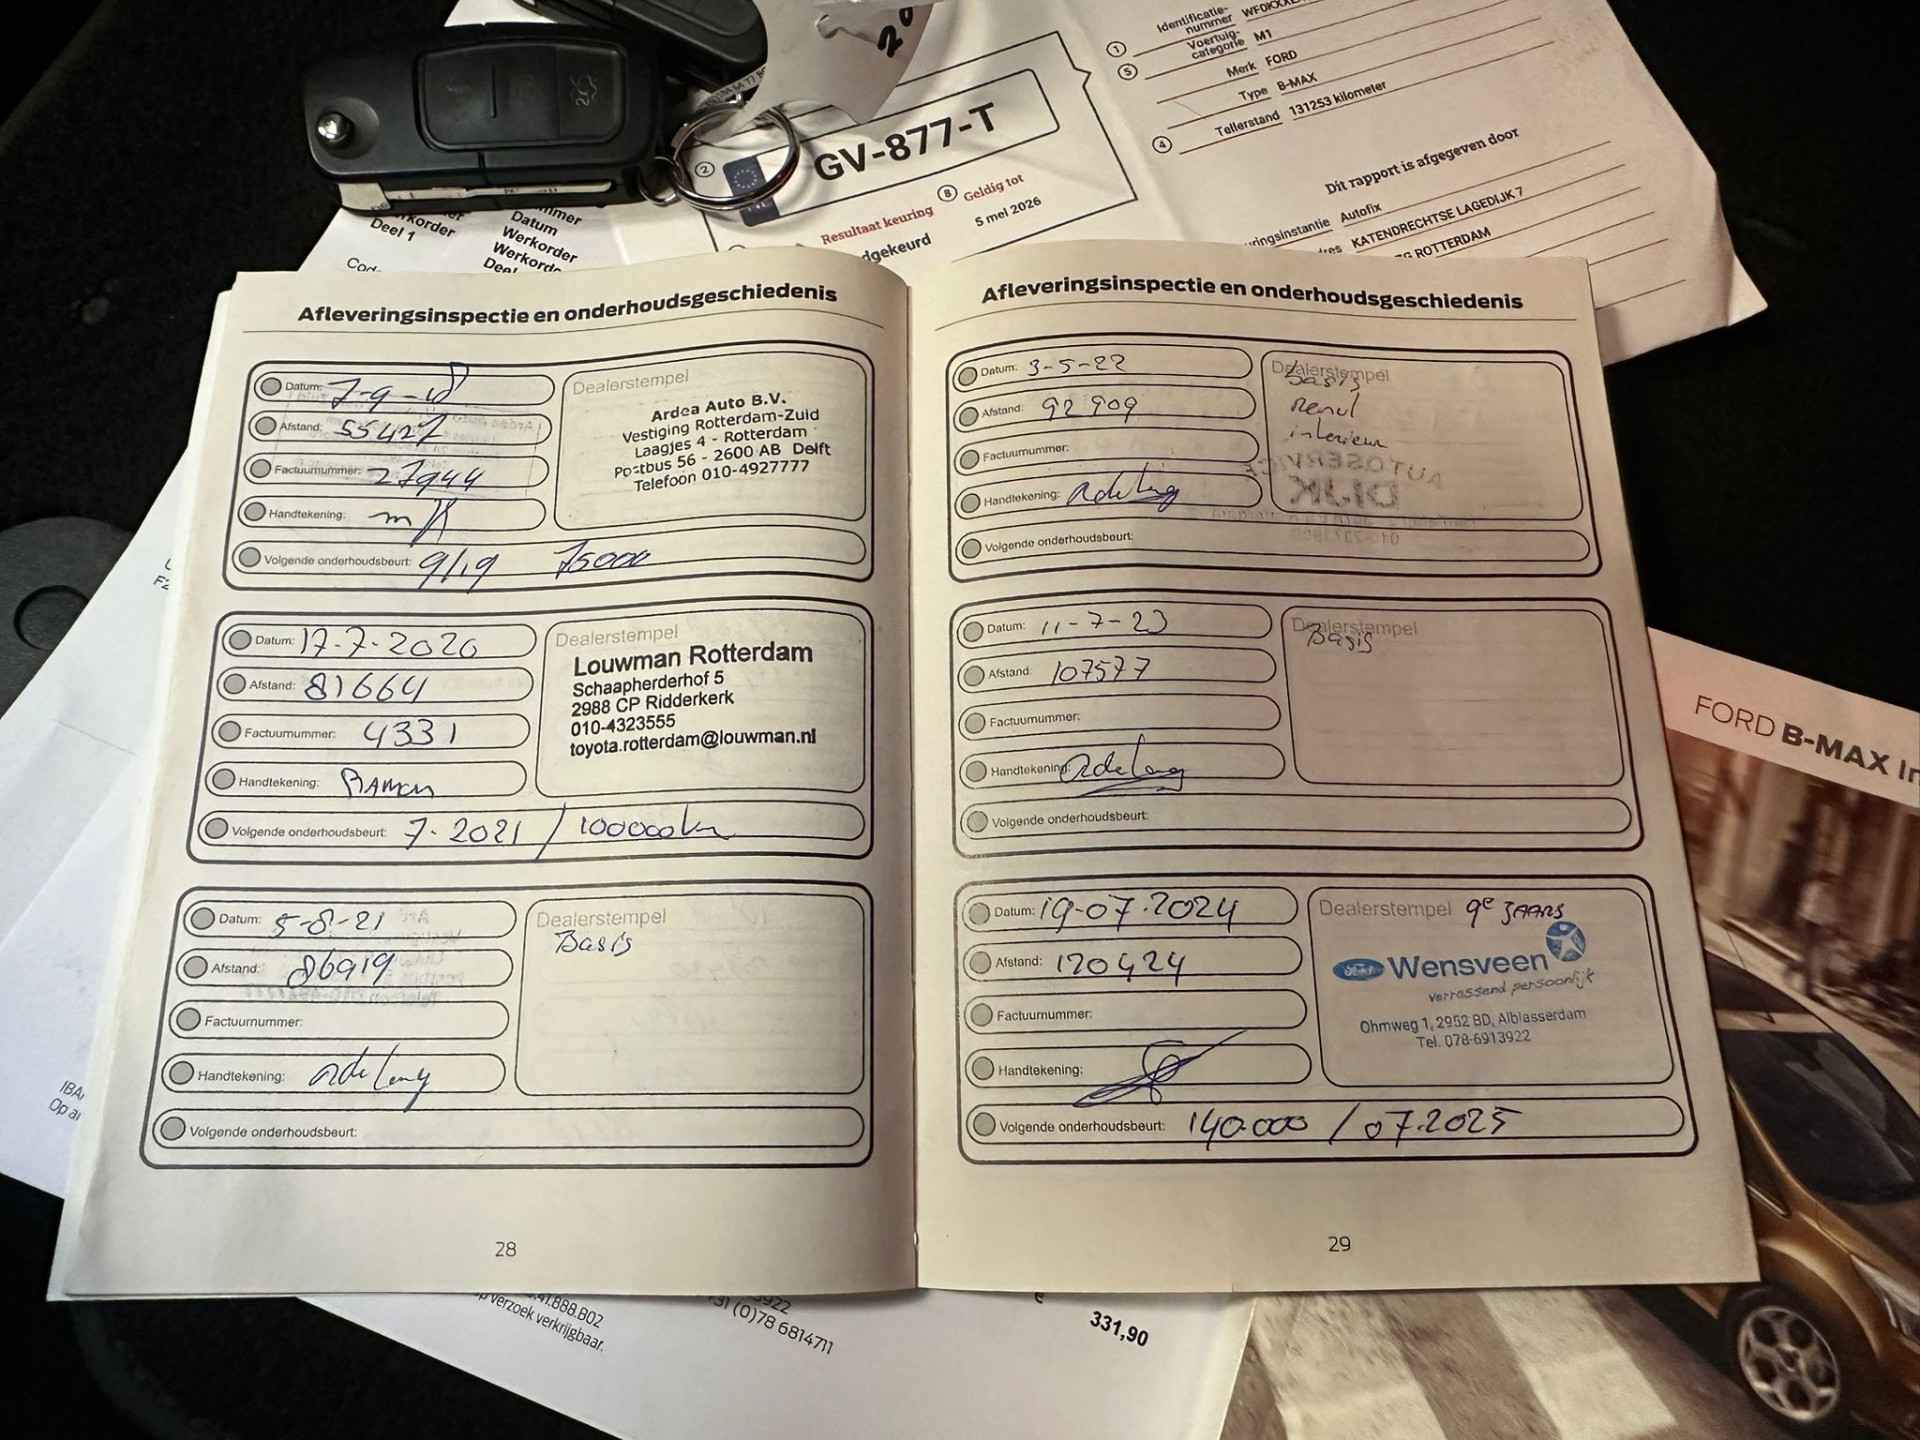 GV-877-T
2
8
Resultaat keuring
Geldig tot
5 mei 2026
1
Identificatie-
nummer
5
Voertuig-
categorie M1
Merk FORD
Type B-MAX
4
Tellerstand 131253 kilometer
Dit rapport is afgegeven door
Autofix
KATENDRECHTSE LAGEDIJK 7
ROTTERDAM
Deel 1
Datum
Werkorder
Afleveringsinspectie en onderhoudsgeschiedenis
Datum: 7-9-18
Afstand: 55427
Factuurnummer: 27944
Handtekening:
Volgende onderhoudsbeurt: 9/19 75000
Dealerstempel
Ardea Auto B.V.
Vestiging Rotterdam-Zuid
Laagjes 4 - Rotterdam
Postbus 56 - 2600 AB Delft
Telefoon 010-4927777
Datum: 17-7-2020
Afstand: 81664
Factuurnummer: 4331
Handtekening:
Volgende onderhoudsbeurt: 7-2021 / 100000km
Dealerstempel
Louwman Rotterdam
Schaapherderhof 5
2988 CP Ridderkerk
010-4323555
toyota.rotterdam@louwman.nl
Datum: 5-8-21
Afstand: 86919
Factuurnummer:
Handtekening:
Volgende onderhoudsbeurt:
Dealerstempel
Basis
28
Afleveringsinspectie en onderhoudsgeschiedenis
Datum: 3-5-22
Afstand: 92909
Factuurnummer:
Handtekening:
Volgende onderhoudsbeurt:
Dealerstempel
Basis
interieur
AUTOSERVICE
DIJK
Datum: 11-7-23
Afstand: 107577
Factuurnummer:
Handtekening:
Volgende onderhoudsbeurt:
Dealerstempel
Basis
Datum: 19-07-2024
Afstand: 120424
Factuurnummer:
Handtekening:
Volgende onderhoudsbeurt: 140.000 / 07.2025
Dealerstempel 9e JAARS
Ford Wensveen
verrassend persoonlijk
Ohmweg 1, 2952 BD, Alblasserdam
Tel. 078-6913922
29
FORD B-MAX
op verzoek verkrijgbaar.
(0)78 6814711
331,90